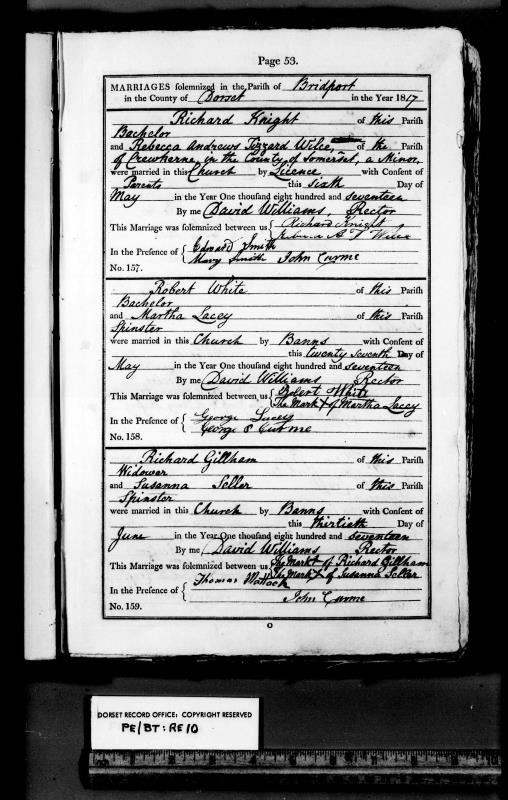 Page 53.
MARRIAGES solemnized in the Parish of Bridport
in the County of Dorset in the Year 1817
Richard Knight of this Parish
Bachelor
and Rebecca Andrews Tizzard Wilce, of the Parish
of Crewkerne, in the County of Somerset, a Minor,
were married in this Church by Licence with Consent of
Parents this sixth Day of
May in the Year One thousand eight hundred and seventeen
By me David Williams, Rector
This Marriage was solemnized between us { Richard Knight
Rebecca A T Wilce
In the Presence of { Edward Smith
Mary Smith John Curme
No. 157.
Robert White of this Parish
Bachelor
and Martha Lacey of this Parish
Spinster
were married in this Church by Banns with Consent of
this twenty seventh Day of
May in the Year One thousand eight hundred and seventeen
By me David Williams Rector
This Marriage was solemnized between us { Robert White
The Mark X of Martha Lacey
In the Presence of { George Lacey
George S Curme
No. 158.
Richard Gillham of this Parish
Widower
and Susanna Seller of this Parish
Spinster
were married in this Church by Banns with Consent of
this thirtieth Day of
June in the Year One thousand eight hundred and seventeen
By me David Williams Rector
This Marriage was solemnized between us { The Mark X of Richard Gillham
The Mark X of Susanna Seller
In the Presence of { Thomas
John Curme
No. 159.
O
DORSET RECORD OFFICE: COPYRIGHT RESERVED
PE/BT: RE10